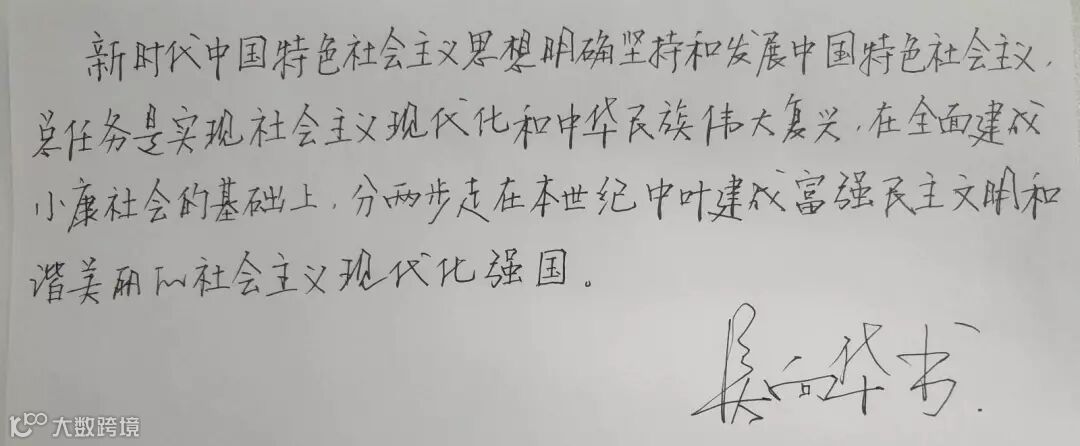 新时代中国特色社会主义思想明确坚持和发展中国特色社会主义,
总任务是实现社会主义现代化和中华民族伟大复兴,在全面建成
小康社会的基础上,分两步走在本世纪中叶建成富强民主文明和
谐美丽的社会主义现代化强国。
吴向华书.
大数跨境